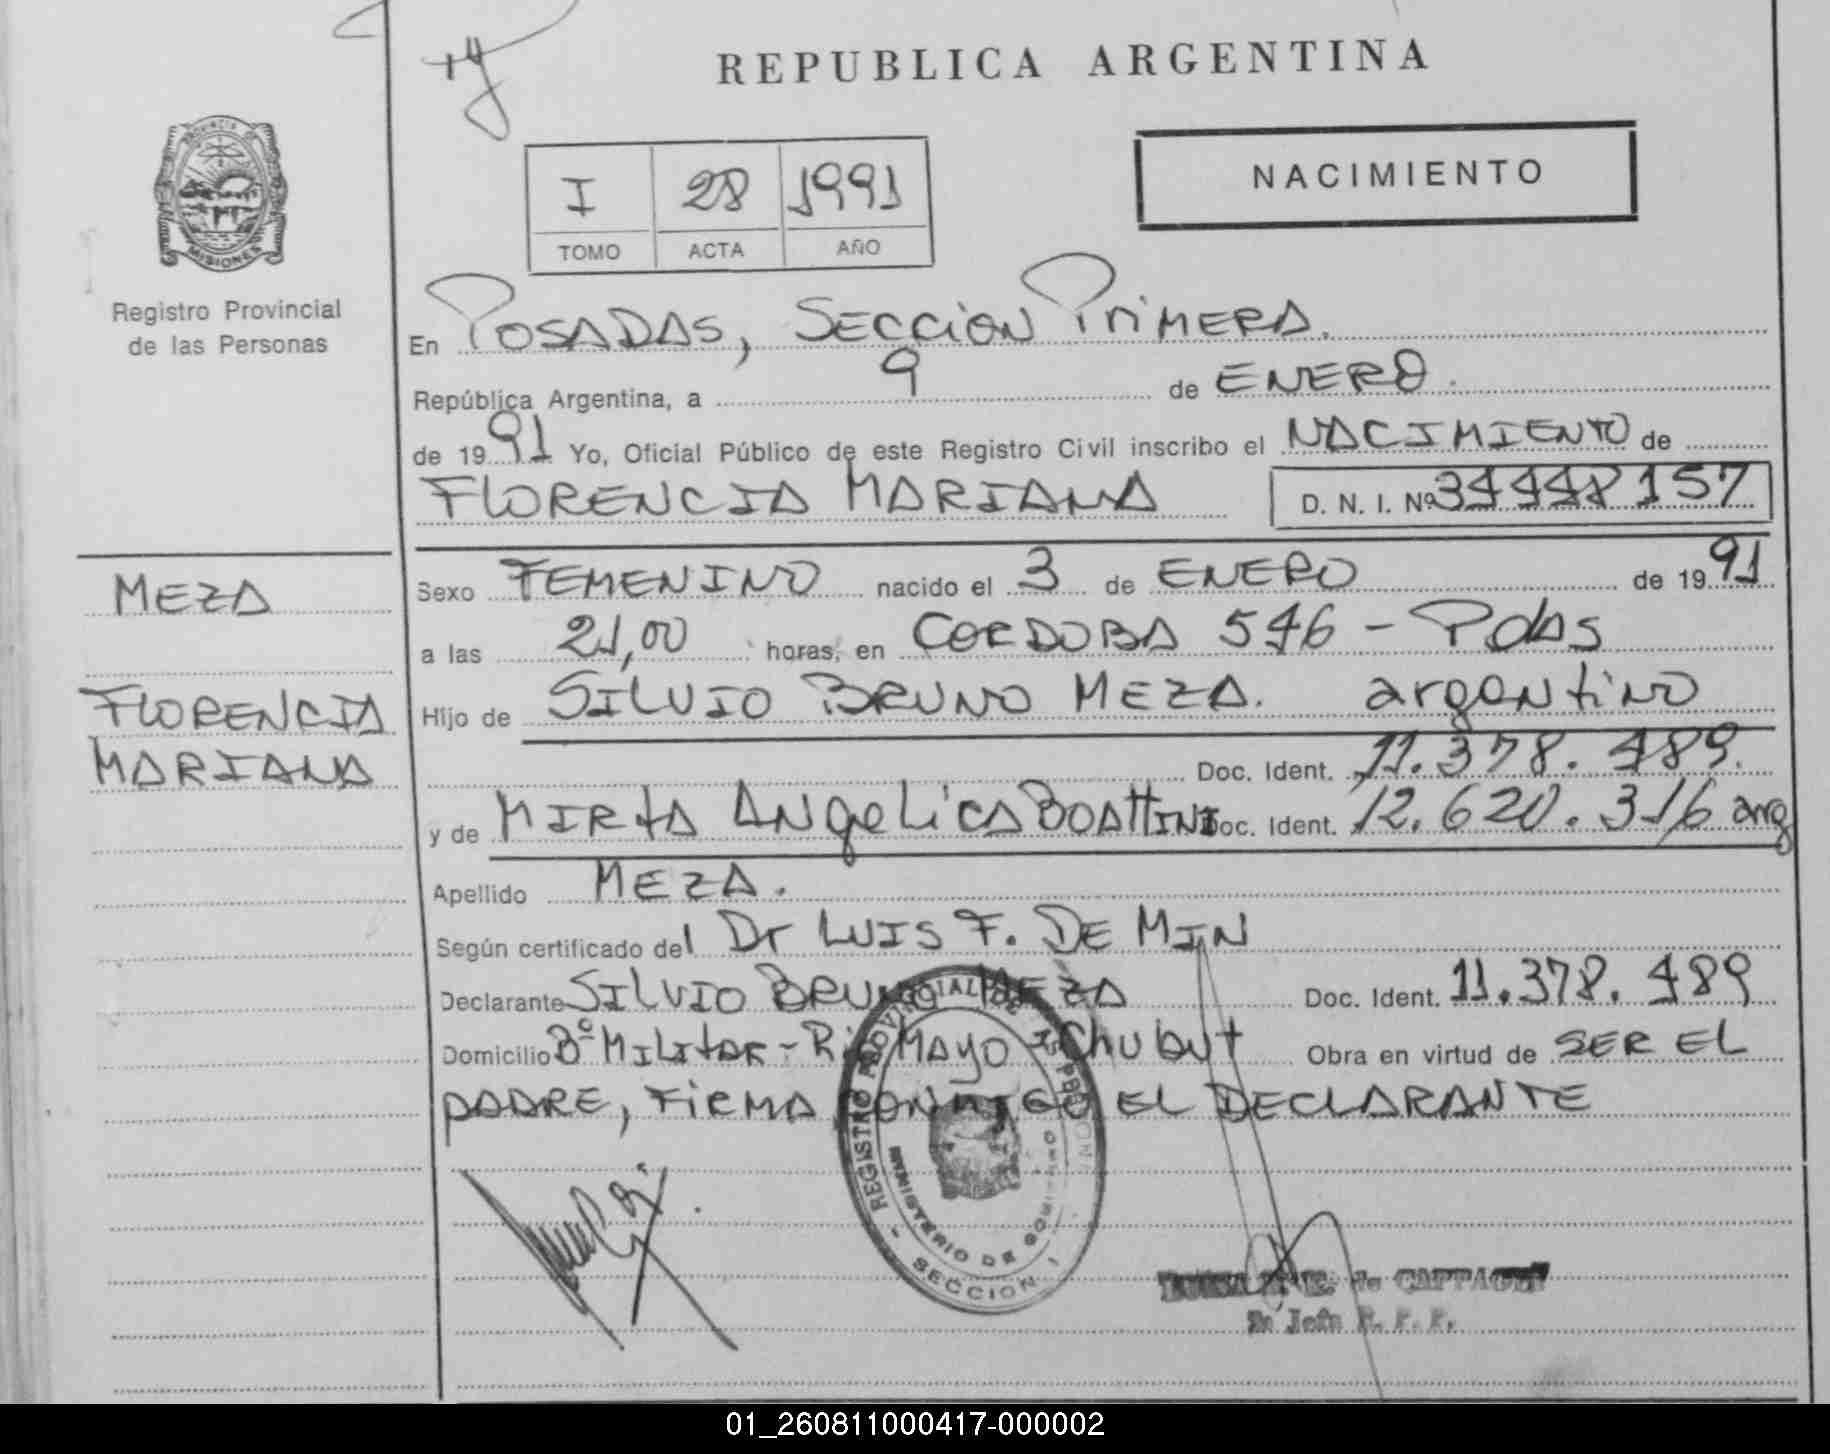 REPUBLICA ARGENTINA
I 28 1991
TOMO ACTA AÑO
NACIMIENTO
PROVINCIA DE MISIONES
Registro Provincial
de las Personas
En POSADAS, SECCION PRIMERA.
República Argentina, a 9 de ENERO.
de 1991 Yo, Oficial Público de este Registro Civil inscribo el NACIMIENTO de
FLORENCIA MARIANA D. N. I. Nº 34448157
MEZA
FLORENCIA
MARIANA
Sexo FEMENINO nacido el 3 de ENERO de 1991
a las 21,00 horas, en CORDOBA 546 - Pdas
Hijo de SILVIO BRUNO MEZA. argentino
Doc. Ident. 11.378.489.
y de MIRTA ANGELICA BOATTINI Doc. Ident. 12.620.316 arg
Apellido MEZA.
Según certificado del Dr LUIS F. DE MIN
Declarante SILVIO BRUNO MEZA Doc. Ident. 11.378.489
Domicilio Bº MILITAR - Rio MAYO - Chubut Obra en virtud de SER EL
PADRE, FIRMA CONMIGO EL DECLARANTE
REGISTRO PROVINCIAL DE LAS PERSONAS
MINISTERIO DE GOBIERNO
- SECCION 1
de CAPPAGLI
2a Jefa R. P. P.
01_260811000417-000002